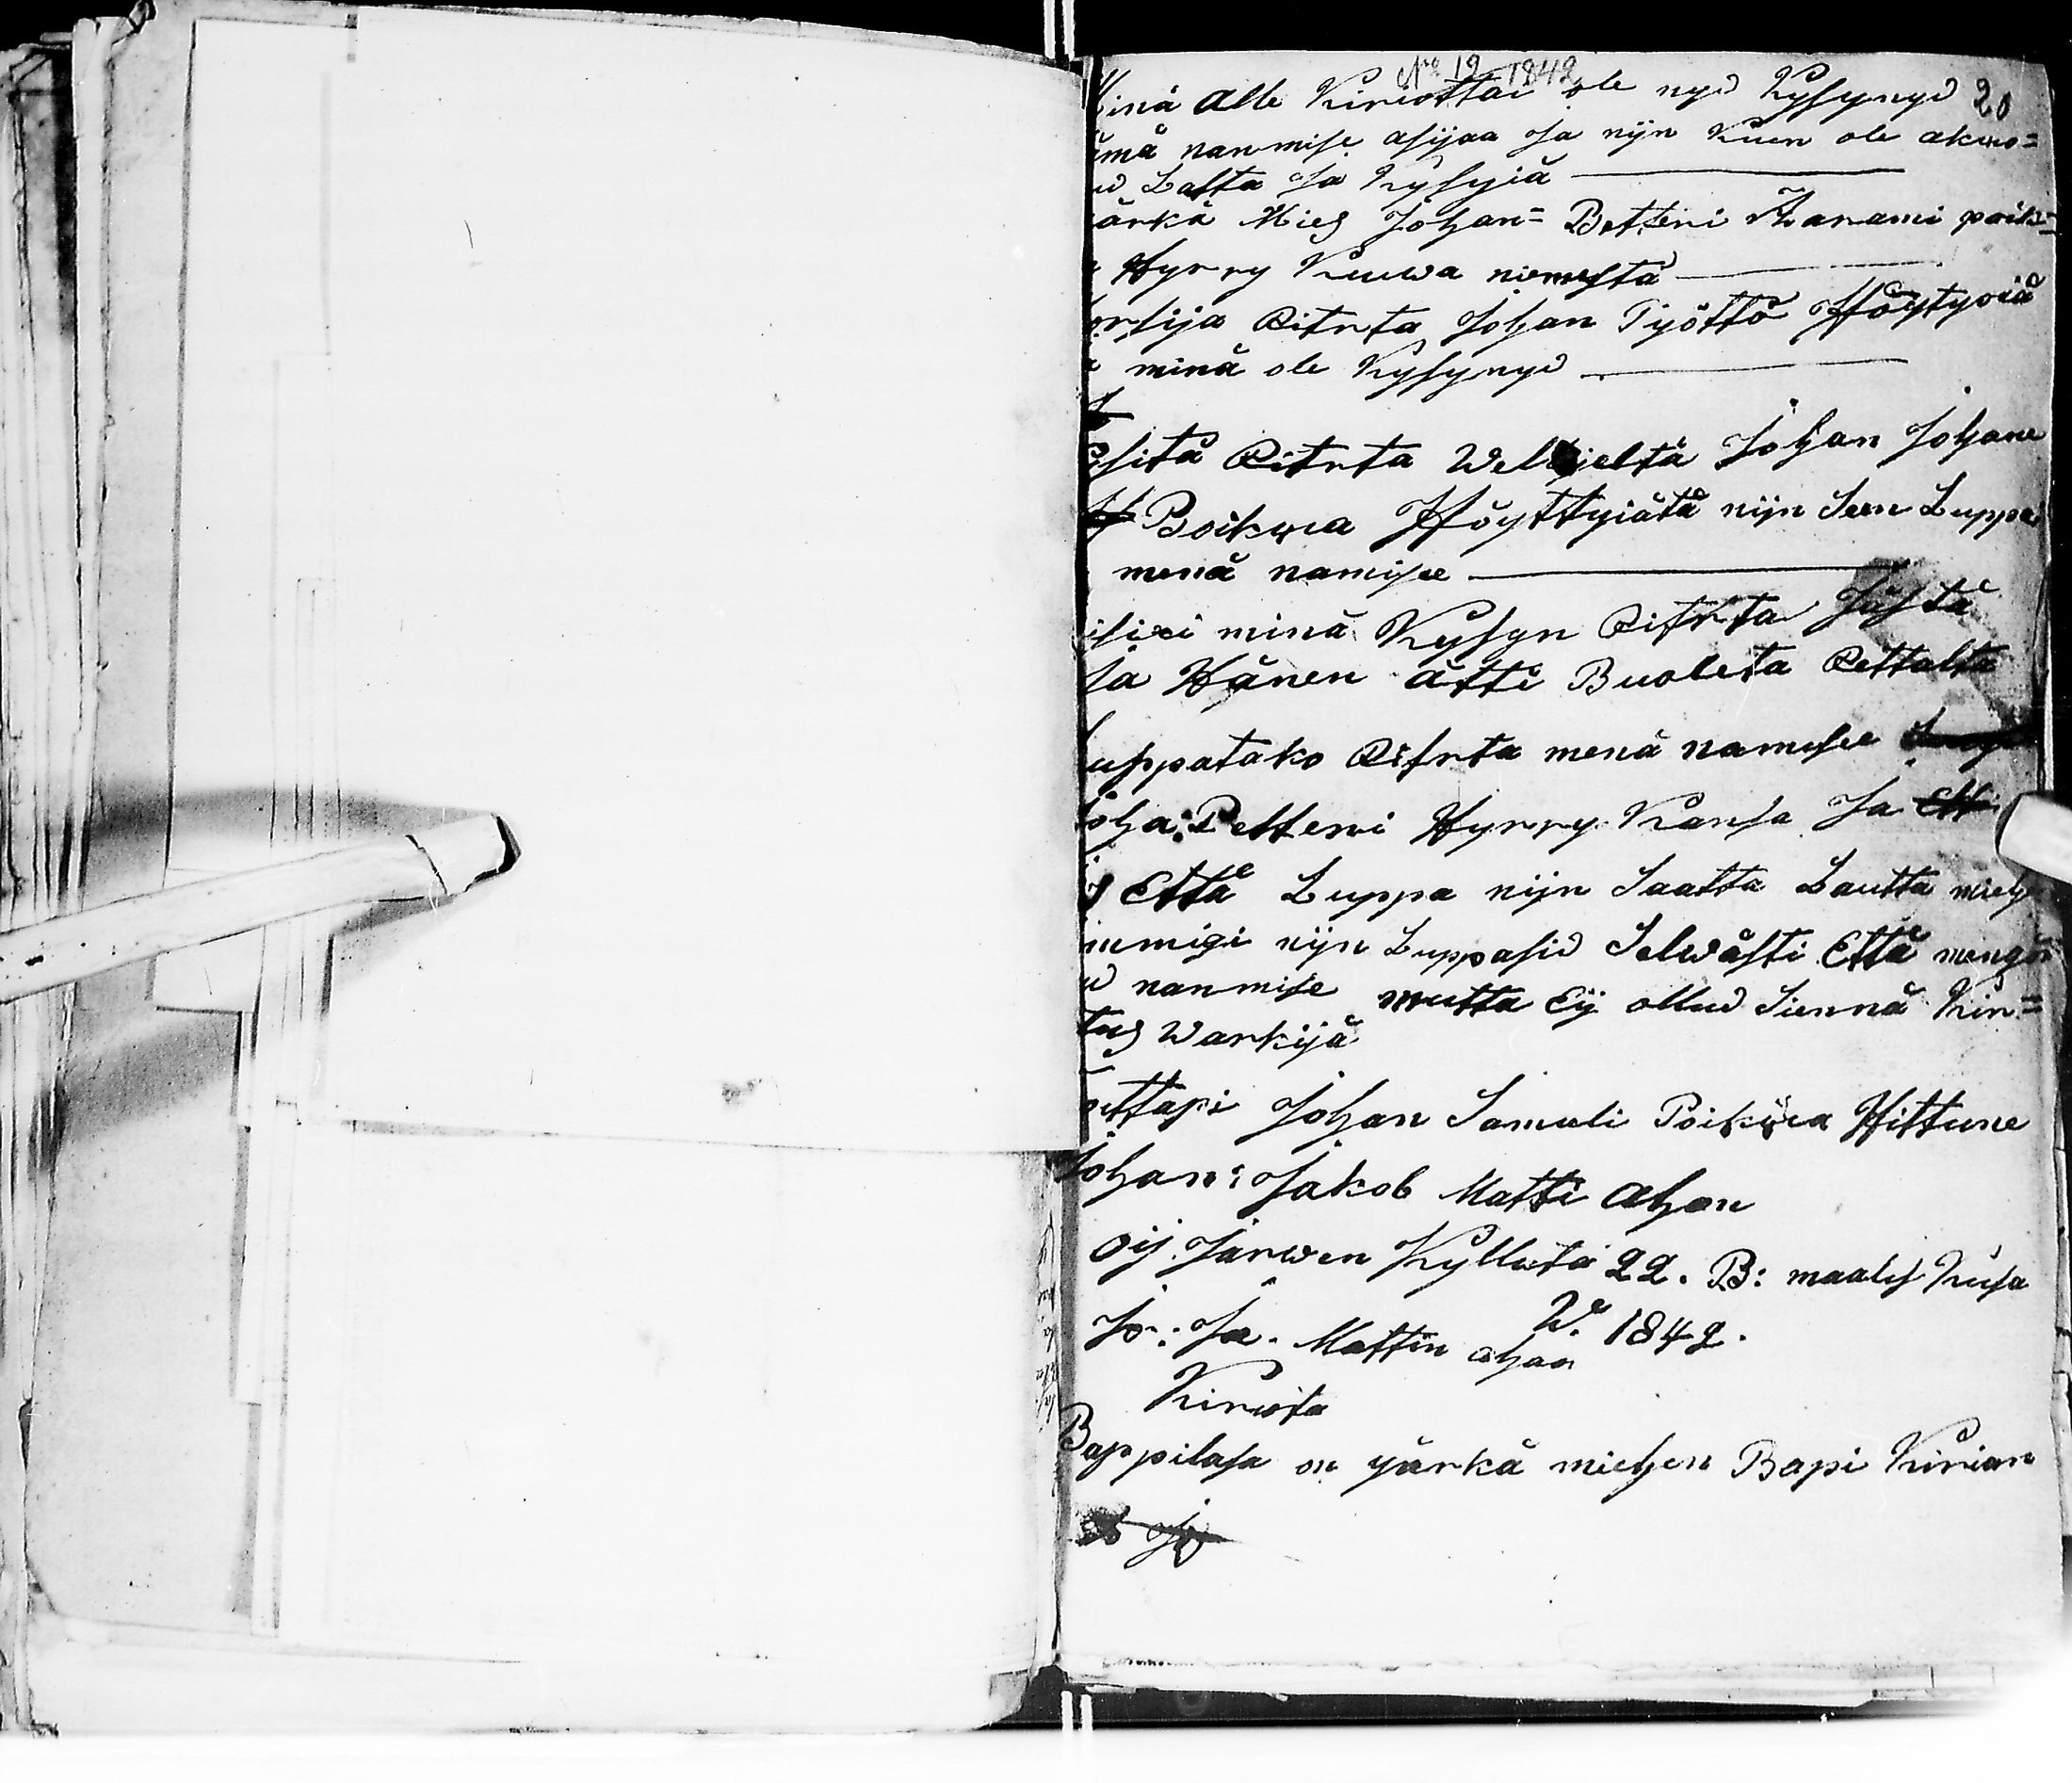 No 12 1842
inä Alle Kiriottai ole nyd Kysynyd 20
ämä nanmise asijaa Ja nijn Kuin ole akuo=
Lasta Ja Kysyjä
ärkä Mies Johan= Betteri Aarami poik=
Hyrry Kuuwa niemestä
orsija Ritrta Johan Työttö Höytyriä
minä ole Kysynyd
sitä Ritrta Weljieltä Johan Johane
Boikwa Höyttyiätä nijn Seen Luppa
menä namisee
isixi minä Kysyn Ritrta Jästä
ja Hänen ätti Buoleta Rettalta
uppatako Ritrta menä namisee
oha: Petteri Hyrry Kansa Ja
Että Luppa nijn Saatta Lautta mieh
immigi nijn Luppasid Selwästi Että mengö
nanmise mutta Eij ollud Siennä Kir=
tus Warkijä
uttapi Johan Samuli Poikwa Hittune
Johan: Jakob Matti Ahon
Oij Järwen Kylletä 22. B: maalis Kusa
W. 1842.
Jo: Ja. Mattin ahon
Kiriota
Bappilasa on yärkä miehen Bapi Kirian